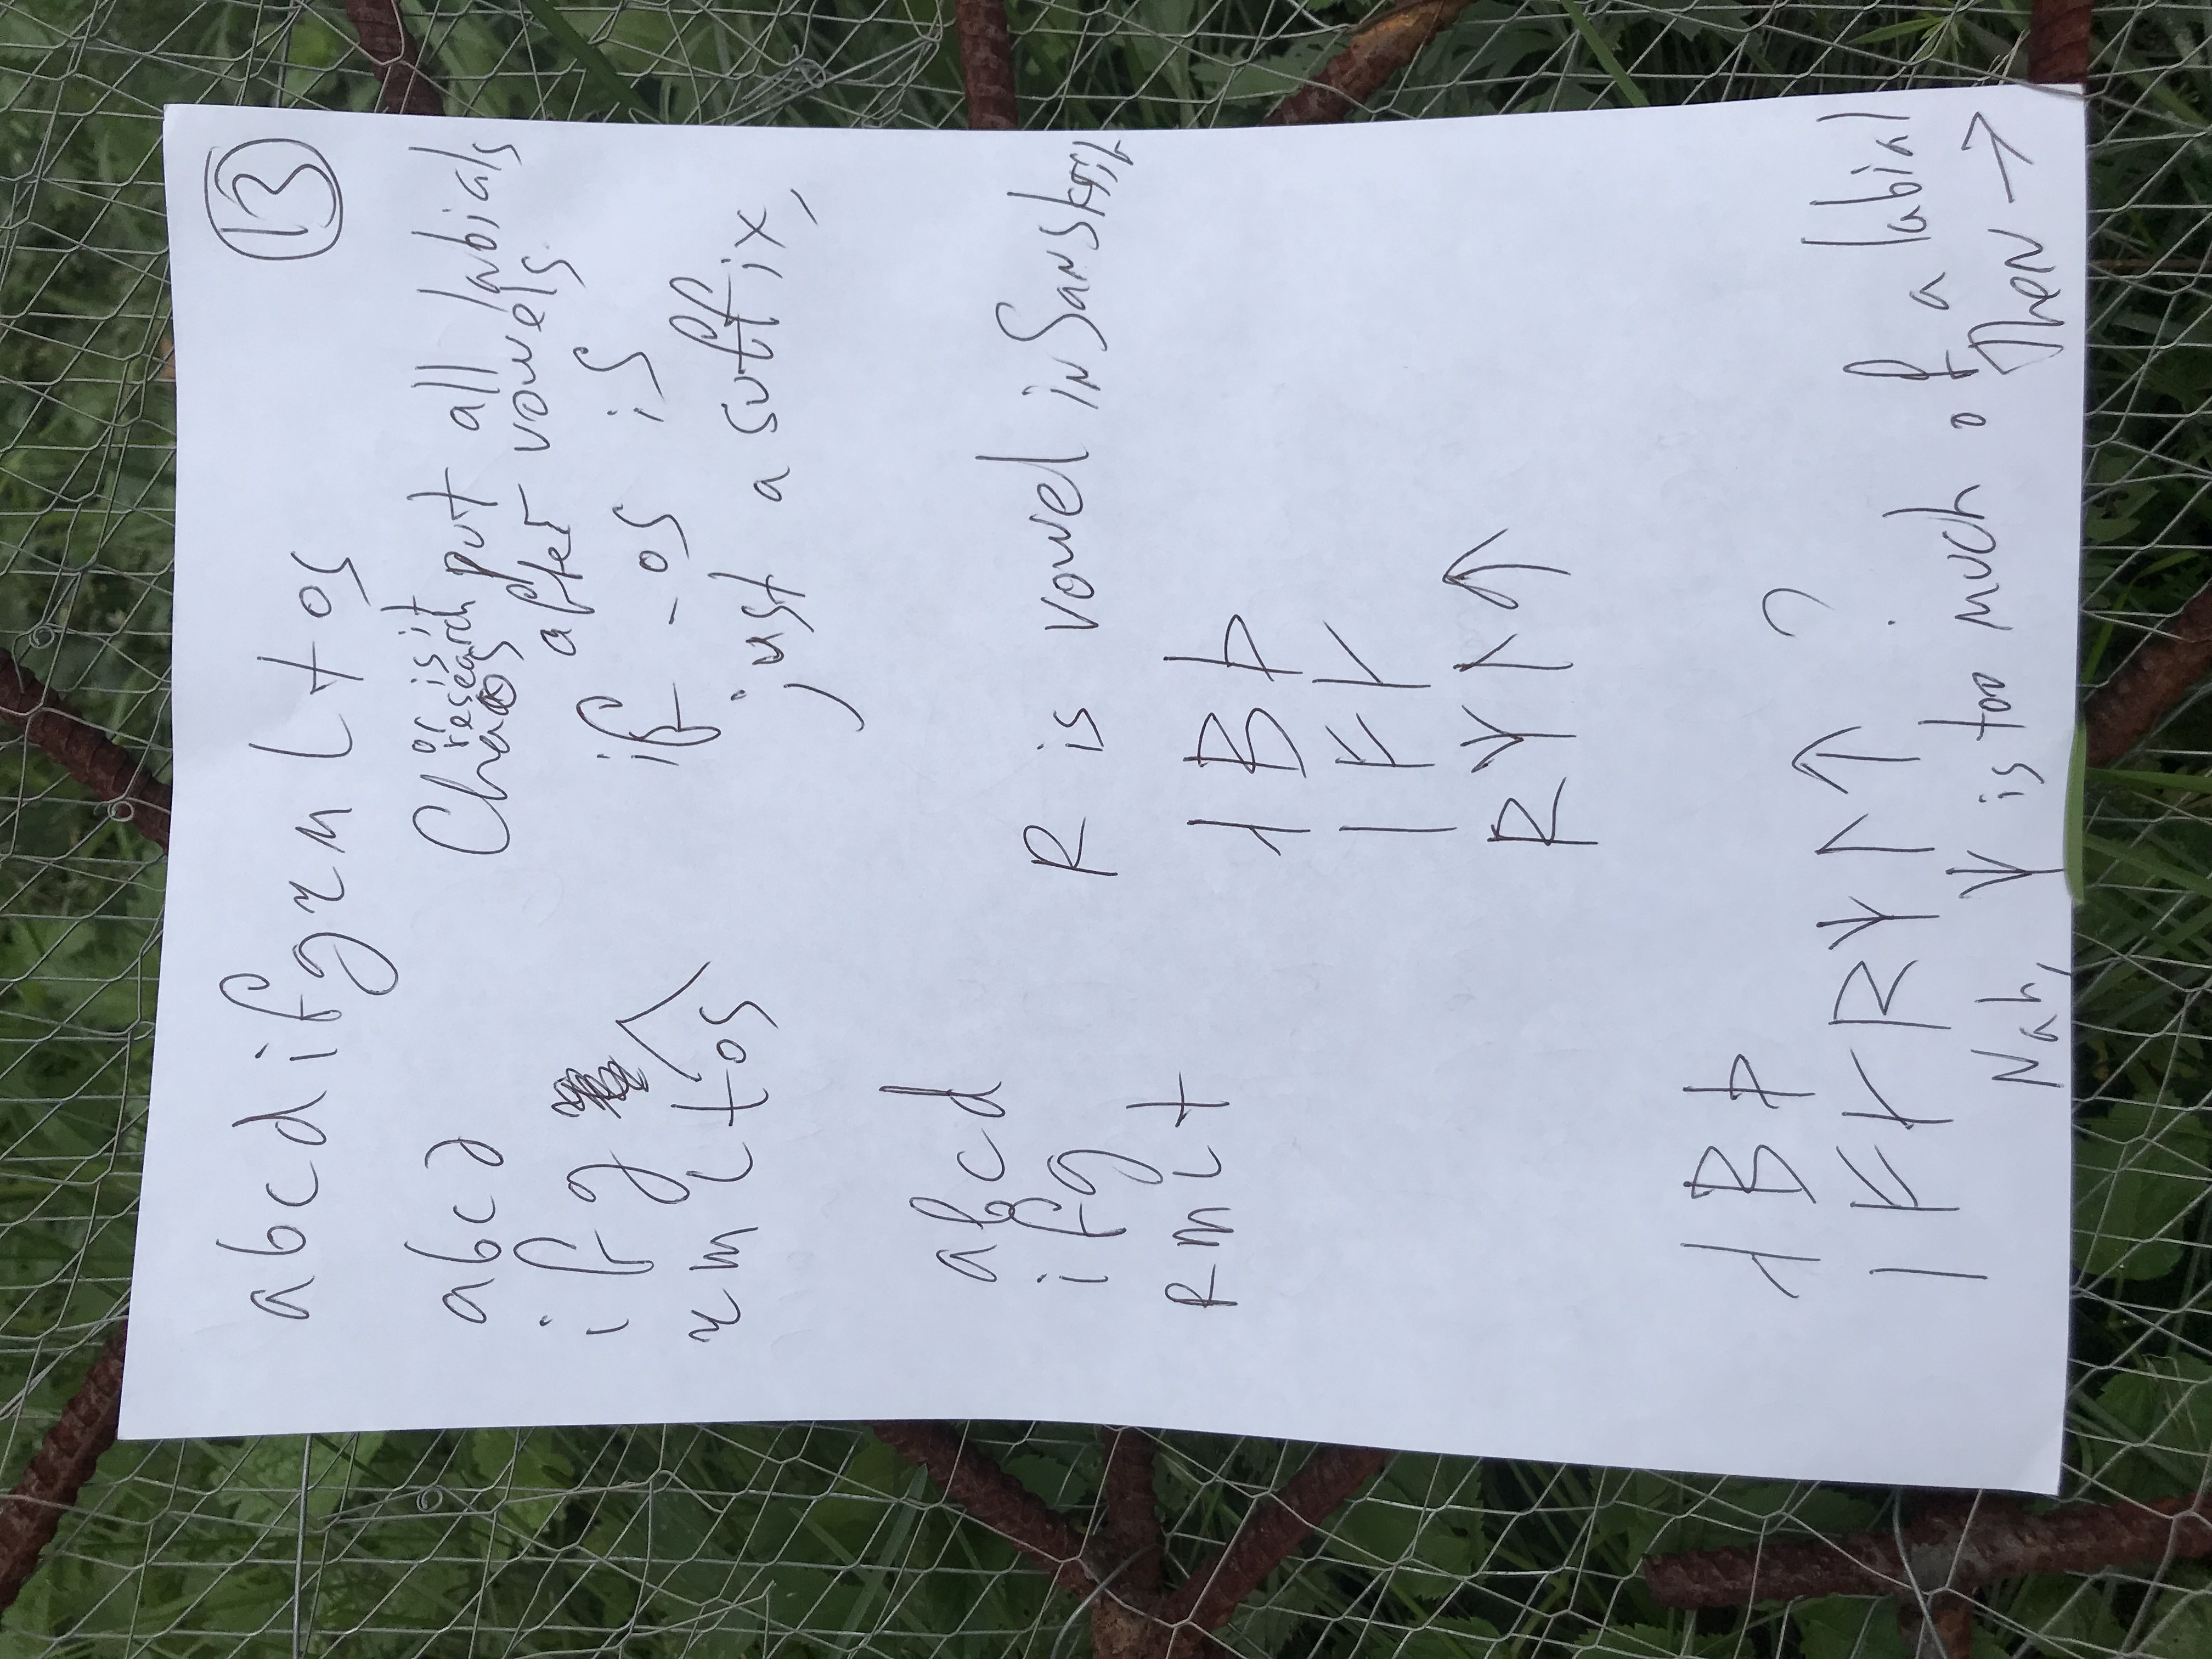 13
abcdifgrmltos
abcd
ifg
rmltos
or is it
research
Chaos put all labials
after vowels.
if -os is
just a suffix,
abcd
ifg
Rmlt
R is vowel in Sanskrit
ᛆ ᛒ ᚦ
ᛁ ᚠ ᚴ
ᚱ ᛘ ᛚ ᛏ
ᛆ ᛒ ᚦ
ᛁ ᚠ ᚴ ᚱ ᛘ ᛚ ᛏ ?
Nah, ᛘ is too much of a labial
Then →